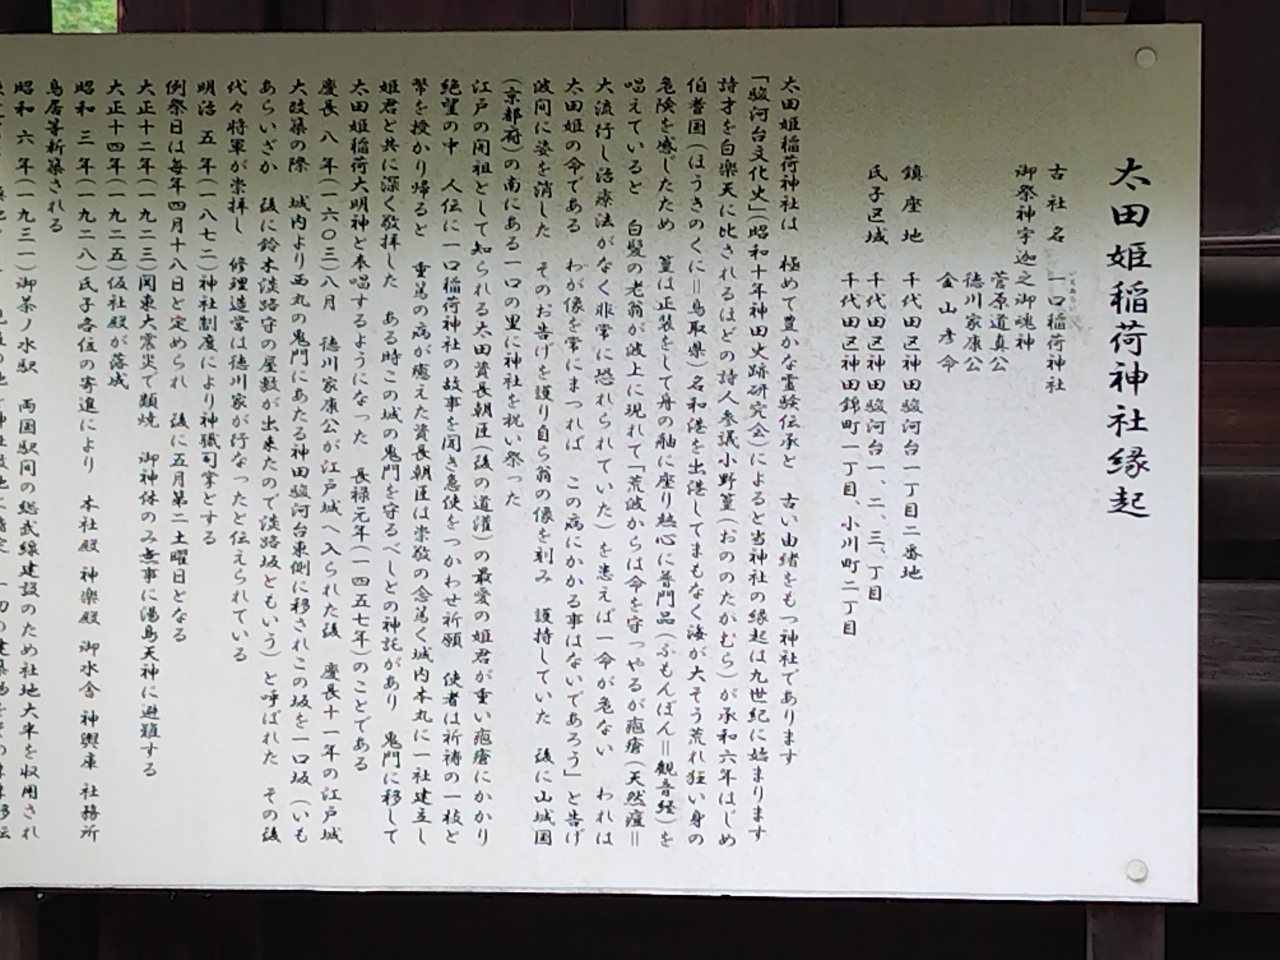 太田姫稲荷神社縁起
古社名 一口稲荷神社
御祭神宇迦之御魂神
菅原道真公
徳川家康公
金山彦命
鎮座地 千代田区神田駿河台一丁目二番地
氏子区域 千代田区神田駿河台一、二、三、丁目
千代田区神田錦町一丁目、小川町二丁目
太田姫稲荷神社は 極めて豊かな霊験伝承と 古い由緒をもつ神社であります
「駿河台文化史」(昭和十年神田史跡研究会)によると当神社の縁起は九世紀に始まります
詩才を白楽天に比されるほどの詩人参議小野篁(おののたかむら)が承和六年はじめ
伯耆国(ほうきのくに＝鳥取県)名和港を出港してまもなく海が大そう荒れ狂い身の
危険を感じたため 篁は正装をして舟の舳に座り熱心に普門品(ふもんぼん＝観音経)を
唱えていると 白髪の老翁が波上に現れて「荒波からは命を守ってやるが疱瘡(天然痘＝
大流行し治療法がなく非常に恐れられていた)を患えば一命が危ない われは
太田姫の命である わが像を常にまつれば この病にかかる事はないであろう」と告げ
波間に姿を消した そのお告げを護り自ら翁の像を刻み 護持していた 後に山城国
(京都府)の南にある一口の里に神社を祝い祭った
江戸の開祖として知られる太田資長朝臣(後の道灌)の最愛の姫君が重い疱瘡にかかり
絶望の中 人伝に一口稲荷神社の故事を聞き急使をつかわせ祈願 使者は祈祷の一枝と
幣を授かり帰ると 重篤の病が癒えた資長朝臣は崇敬の念篤く城内本丸に一社建立し
姫君と共に深く敬拝した ある時この城の鬼門を守るべしとの神託があり 鬼門に移して
太田姫稲荷大明神と奉唱するようになった 長禄元年(一四五七年)のことである
慶長 八年(一六〇三)八月 徳川家康公が江戸城へ入られた後 慶長十一年の江戸城
大改築の際 城内より西丸の鬼門にあたる神田駿河台東側に移されこの坂を一口坂(いも
あらいざか 後に鈴木淡路守の屋敷が出来たので淡路坂ともいう)と呼ばれた その後
代々将軍が崇拝し 修理造営は徳川家が行なったと伝えられている
明治 五年(一八七二)神社制度により神職司掌とする
例祭日は毎年四月十八日と定められ 後に五月第二土曜日となる
大正十二年(一九二三)関東大震災で類焼 御神体のみ無事に湯島天神に避難する
大正十四年(一九二五)仮社殿が落成
昭和 三年(一九二八)氏子各位の寄進により 本社殿 神楽殿 御水舎 神輿庫 社務所
鳥居等新築される
昭和 六年(一九三一)御茶ノ水駅 両国駅間の総武線建設のため社地大半を収用され